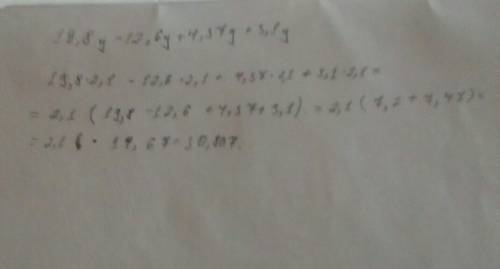 19,8y - 12,6y + 4,37y + 3,1y
19,8·2,1 - 12,6·2,1 + 4,37·2,1 + 3,1·2,1 =
= 2,1 ( 19,8 - 12,6 + 4,37 + 3,1 ) = 2,1 ( 7,2 + 7,47 ) =
= 2,1 · 14,67 = 30,807.